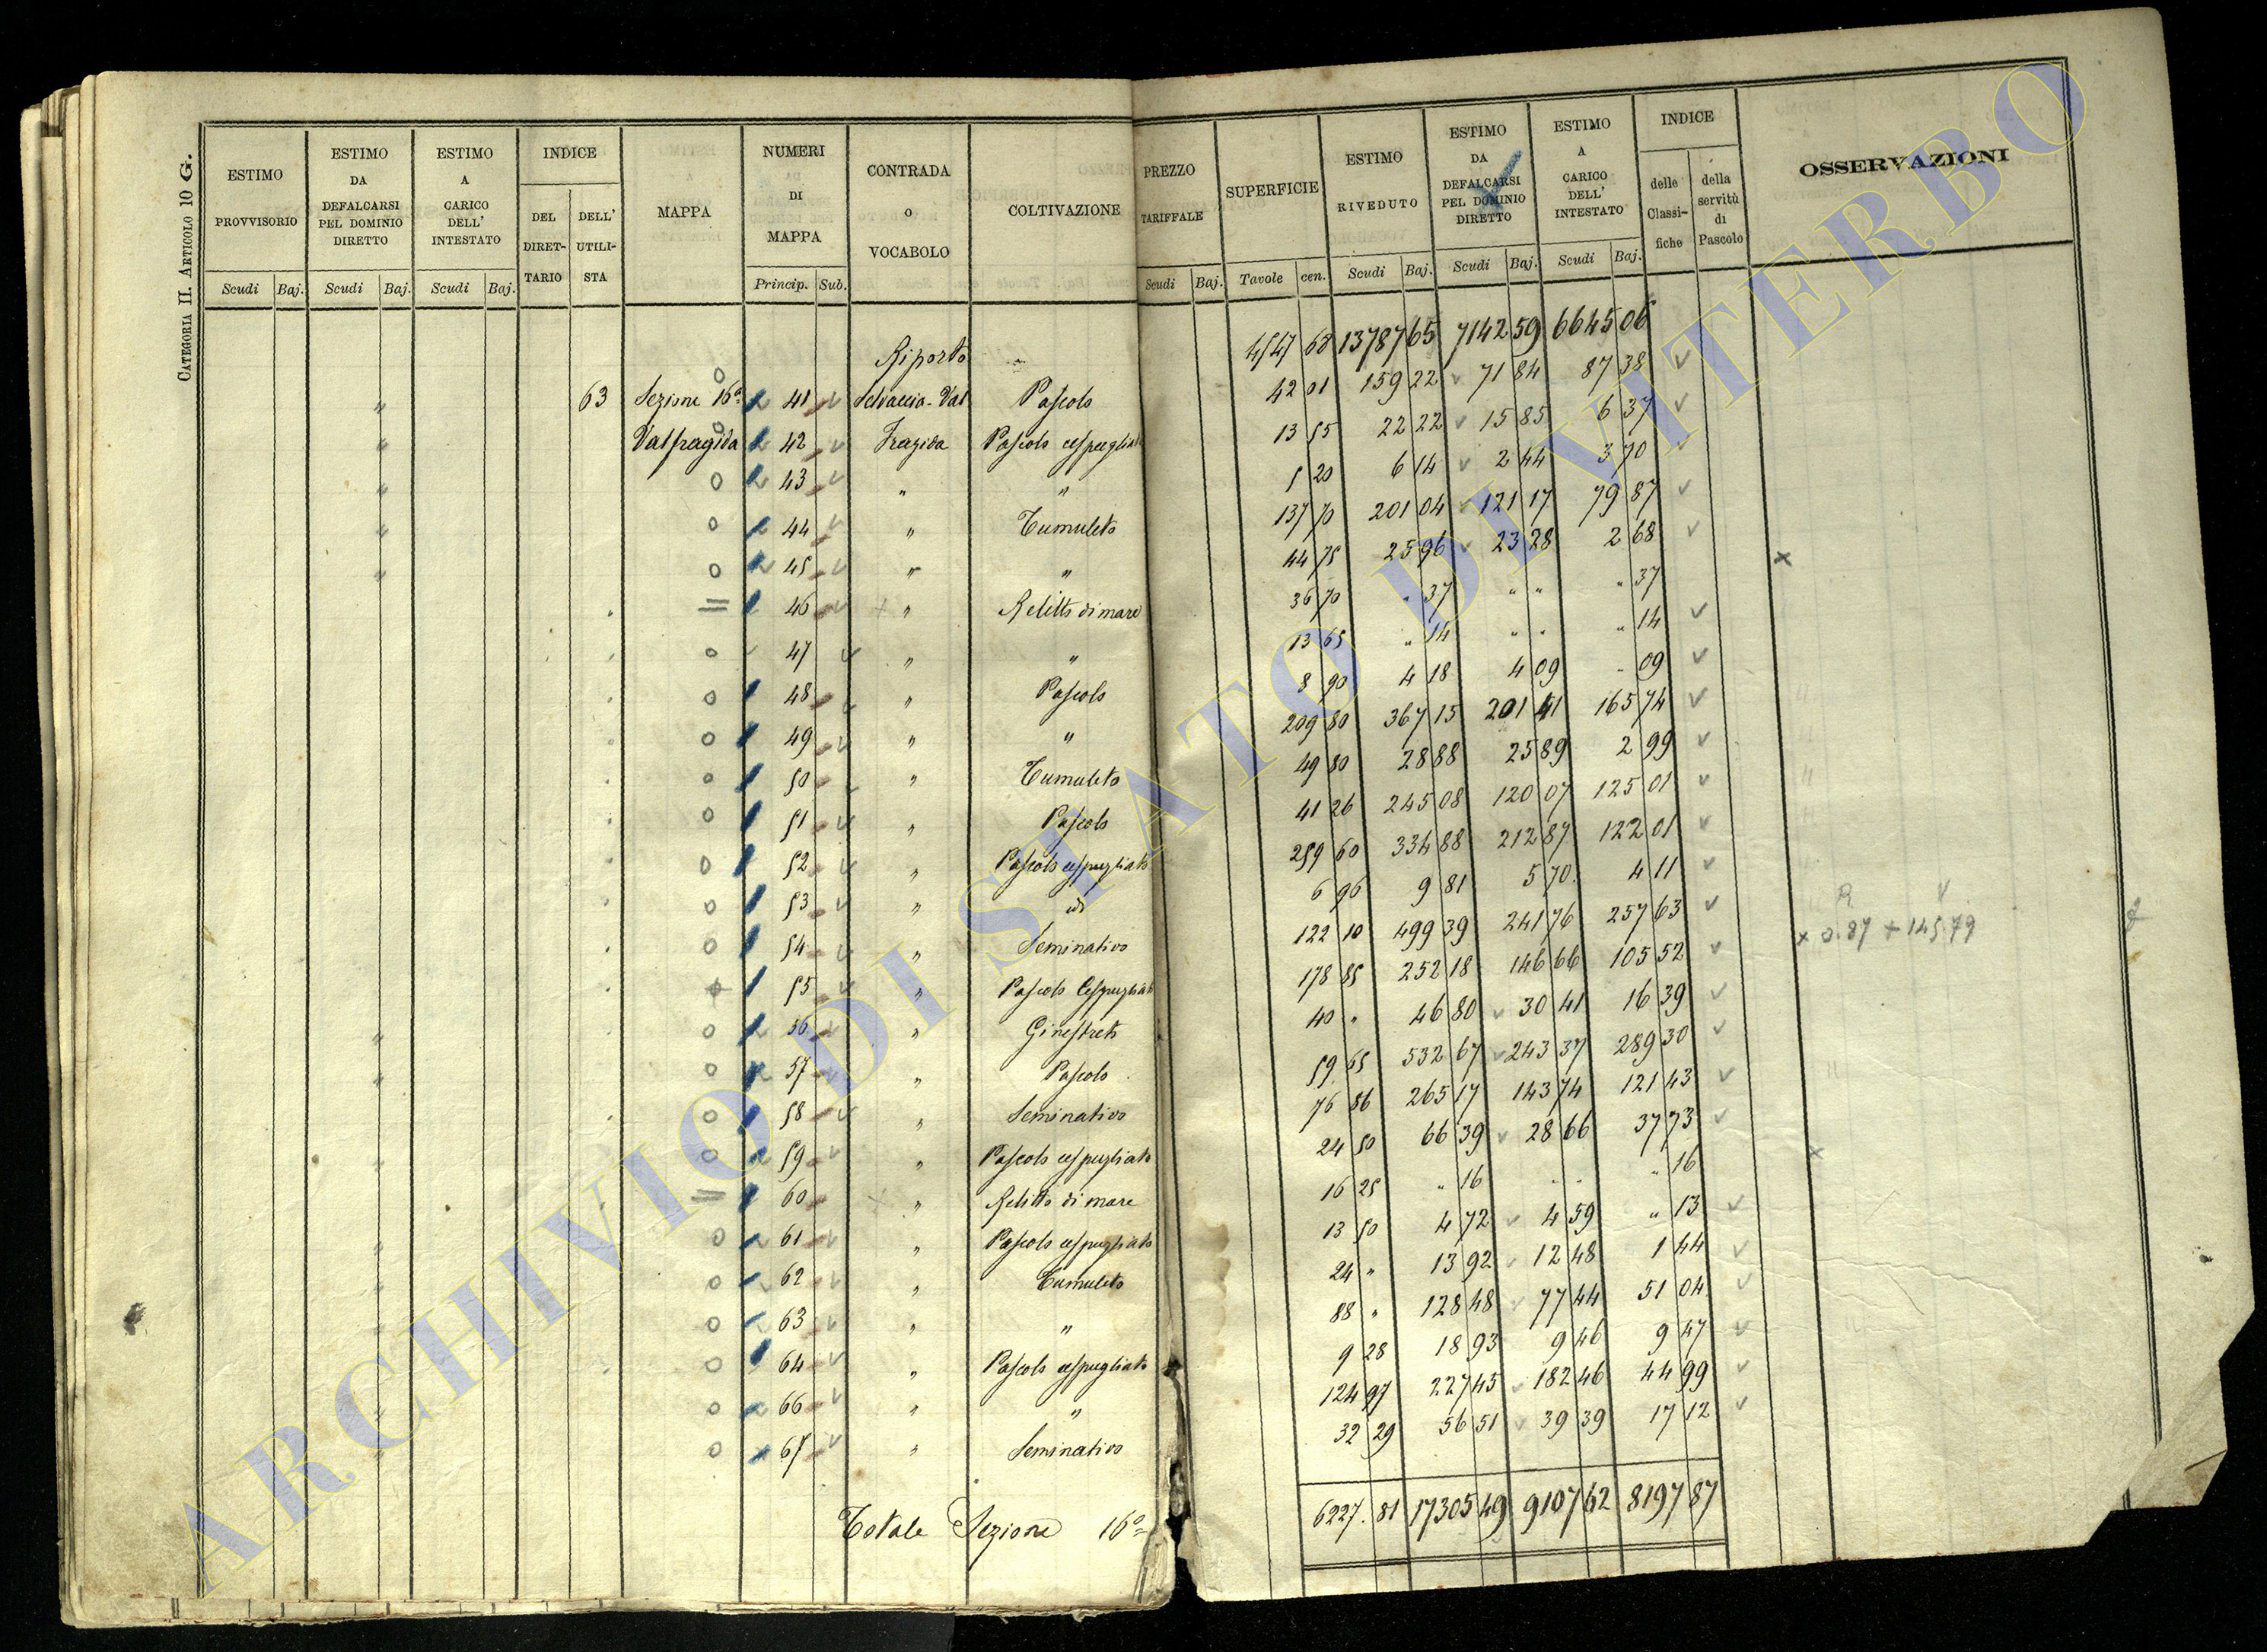 CATEGORIA II. ARTICOLO 10 G.
ESTIMO PROVVISORIO | ESTIMO DA DEFALCARSI PEL DOMINIO DIRETTO | ESTIMO A CARICO DELL' INTESTATO | INDICE | MAPPA | NUMERI DI MAPPA | CONTRADA O VOCABOLO | COLTIVAZIONE | PREZZO TARIFFALE | SUPERFICIE | ESTIMO RIVEDUTO | ESTIMO DA DEFALCARSI PEL DOMINIO DIRETTO | ESTIMO A CARICO DELL' INTESTATO | INDICE | OSSERVAZIONI
DEL DIRETTARIO | DELL' UTILISTA | delle Classifiche | della servitù di Pascolo
Scudi | Baj. | Scudi | Baj. | Scudi | Baj. | Princip. | Sub. | Scudi | Baj. | Tavole | cen. | Scudi | Baj. | Scudi | Baj. | Scudi | Baj.
Riporto 4547 68 13787 65 7142 59 6645 06
" 63 Sezione 16a 41 Selvaccia-Val Pascolo 42 01 159 22 71 84 87 38
" Valfragida 42 Fragida Pascolo cespugliato 13 55 22 22 15 85 6 37
" 43 " " 5 20 6 14 2 44 3 70
" 44 " Tumuleto 137 70 201 04 121 17 79 87
" 45 " " 44 75 25 96 23 28 2 68
46 " Relitto di mare 36 70 " 37 " " " 37 x
47 " " 13 65 " 14 " " " 14
48 " Pascolo 8 90 4 18 4 09 " 09
49 " " 209 80 367 15 201 41 165 74
50 " Tumuleto 49 80 28 88 25 89 2 99
51 " Pascolo 41 26 245 08 120 07 125 01
52 " Pascolo cespugliato 259 60 334 88 212 87 122 01
53 " id 6 96 9 81 5 70 4 11
54 " Seminativo 122 10 499 39 241 76 257 63
R V
55 " Pascolo Cespugliato 178 85 252 18 146 66 105 52 x 0.87 + 145.79
" 56 " Ginestreto 40 " 46 80 30 41 16 39
" 57 " Pascolo 59 65 532 67 243 37 289 30
58 " Seminativo 76 86 265 17 143 74 121 43
" 59 " Pascolo cespugliato 24 50 66 39 28 66 37 73
60 " Relitto di mare 16 25 " 16 " " " 16 x
" 61 " Pascolo cespugliato 13 50 4 72 4 59 " 13
" 62 " Tumuleto 24 " 13 92 12 48 1 44
" 63 " " 88 " 128 48 77 44 51 04
64 " Pascolo cespugliato 9 28 18 93 9 46 9 47
" 66 " " 124 97 227 45 182 46 44 99
" 67 " Seminativo 32 29 56 51 39 39 17 12
Totale Sezione 16a 6227. 81 17305 49 9107 62 8197 87
ARCHIVIO DI STATO DI VITERBO